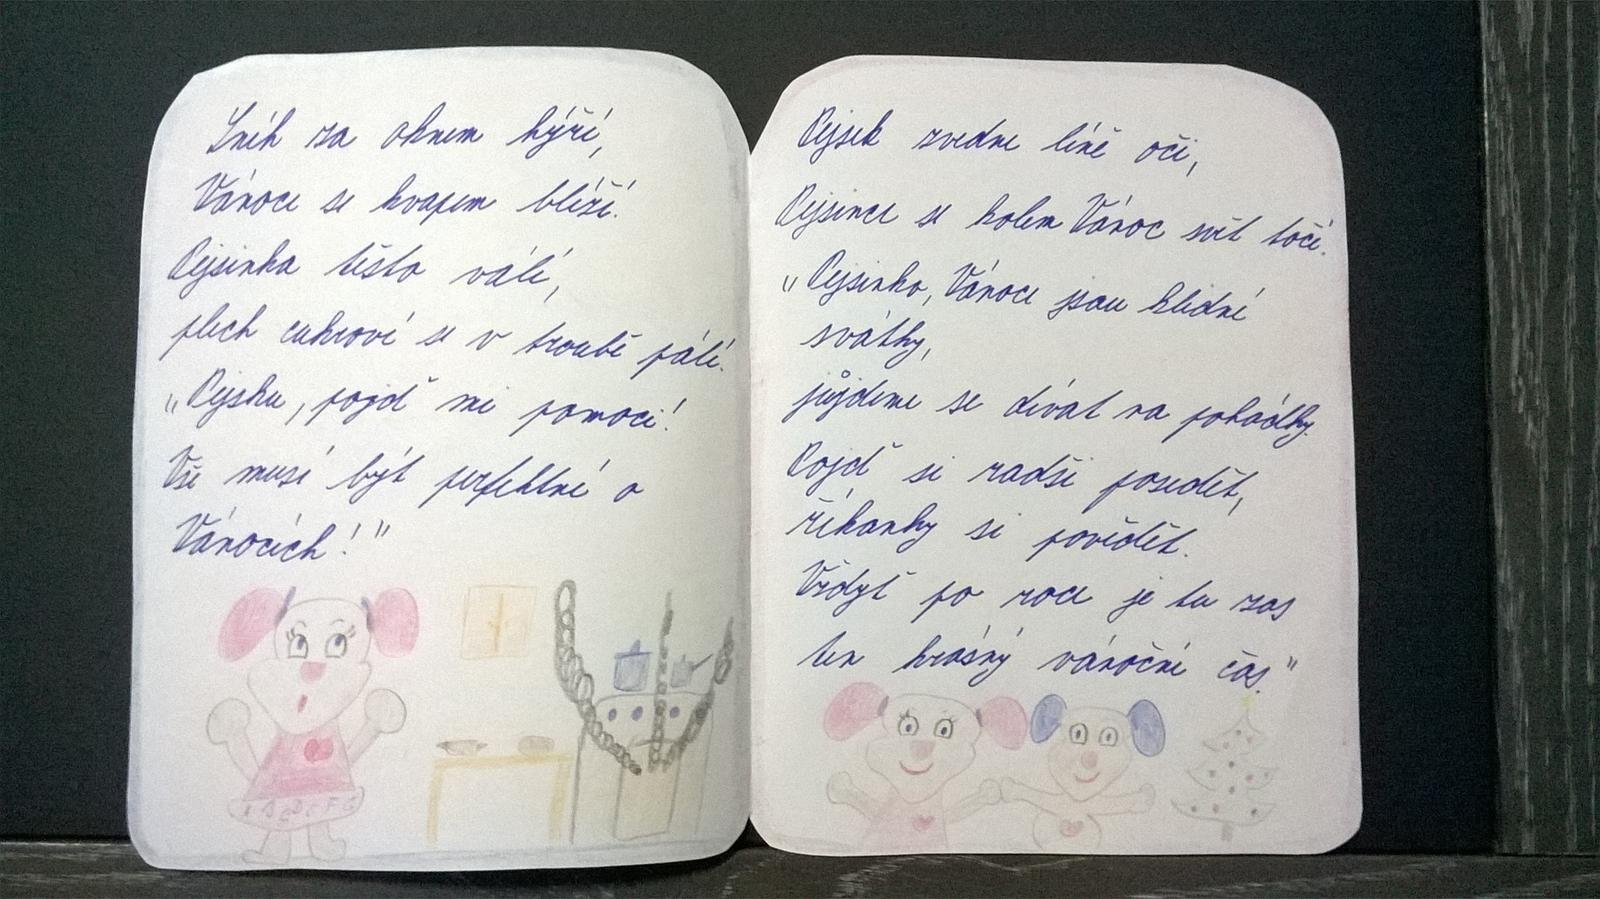 Sníh za oknem hýří,
Vánoce se kvapem blíží.
Pejsinka těsto válí,
plech cukroví se v troubě pálí.
„Pejsku, pojď mi pomoci!
Vše musí být perfektní o
Vánocích!"
Pejsek zvedne líně oči,
Pejsince se kolem Vánoc svět točí.
„Pejsinko, Vánoce jsou klidné
svátky,
půjdeme se dívat na pohádky.
Pojď si radši posedět,
říkanky si povědět.
Vždyť po roce je tu zas
ten krásný vánoční čas."